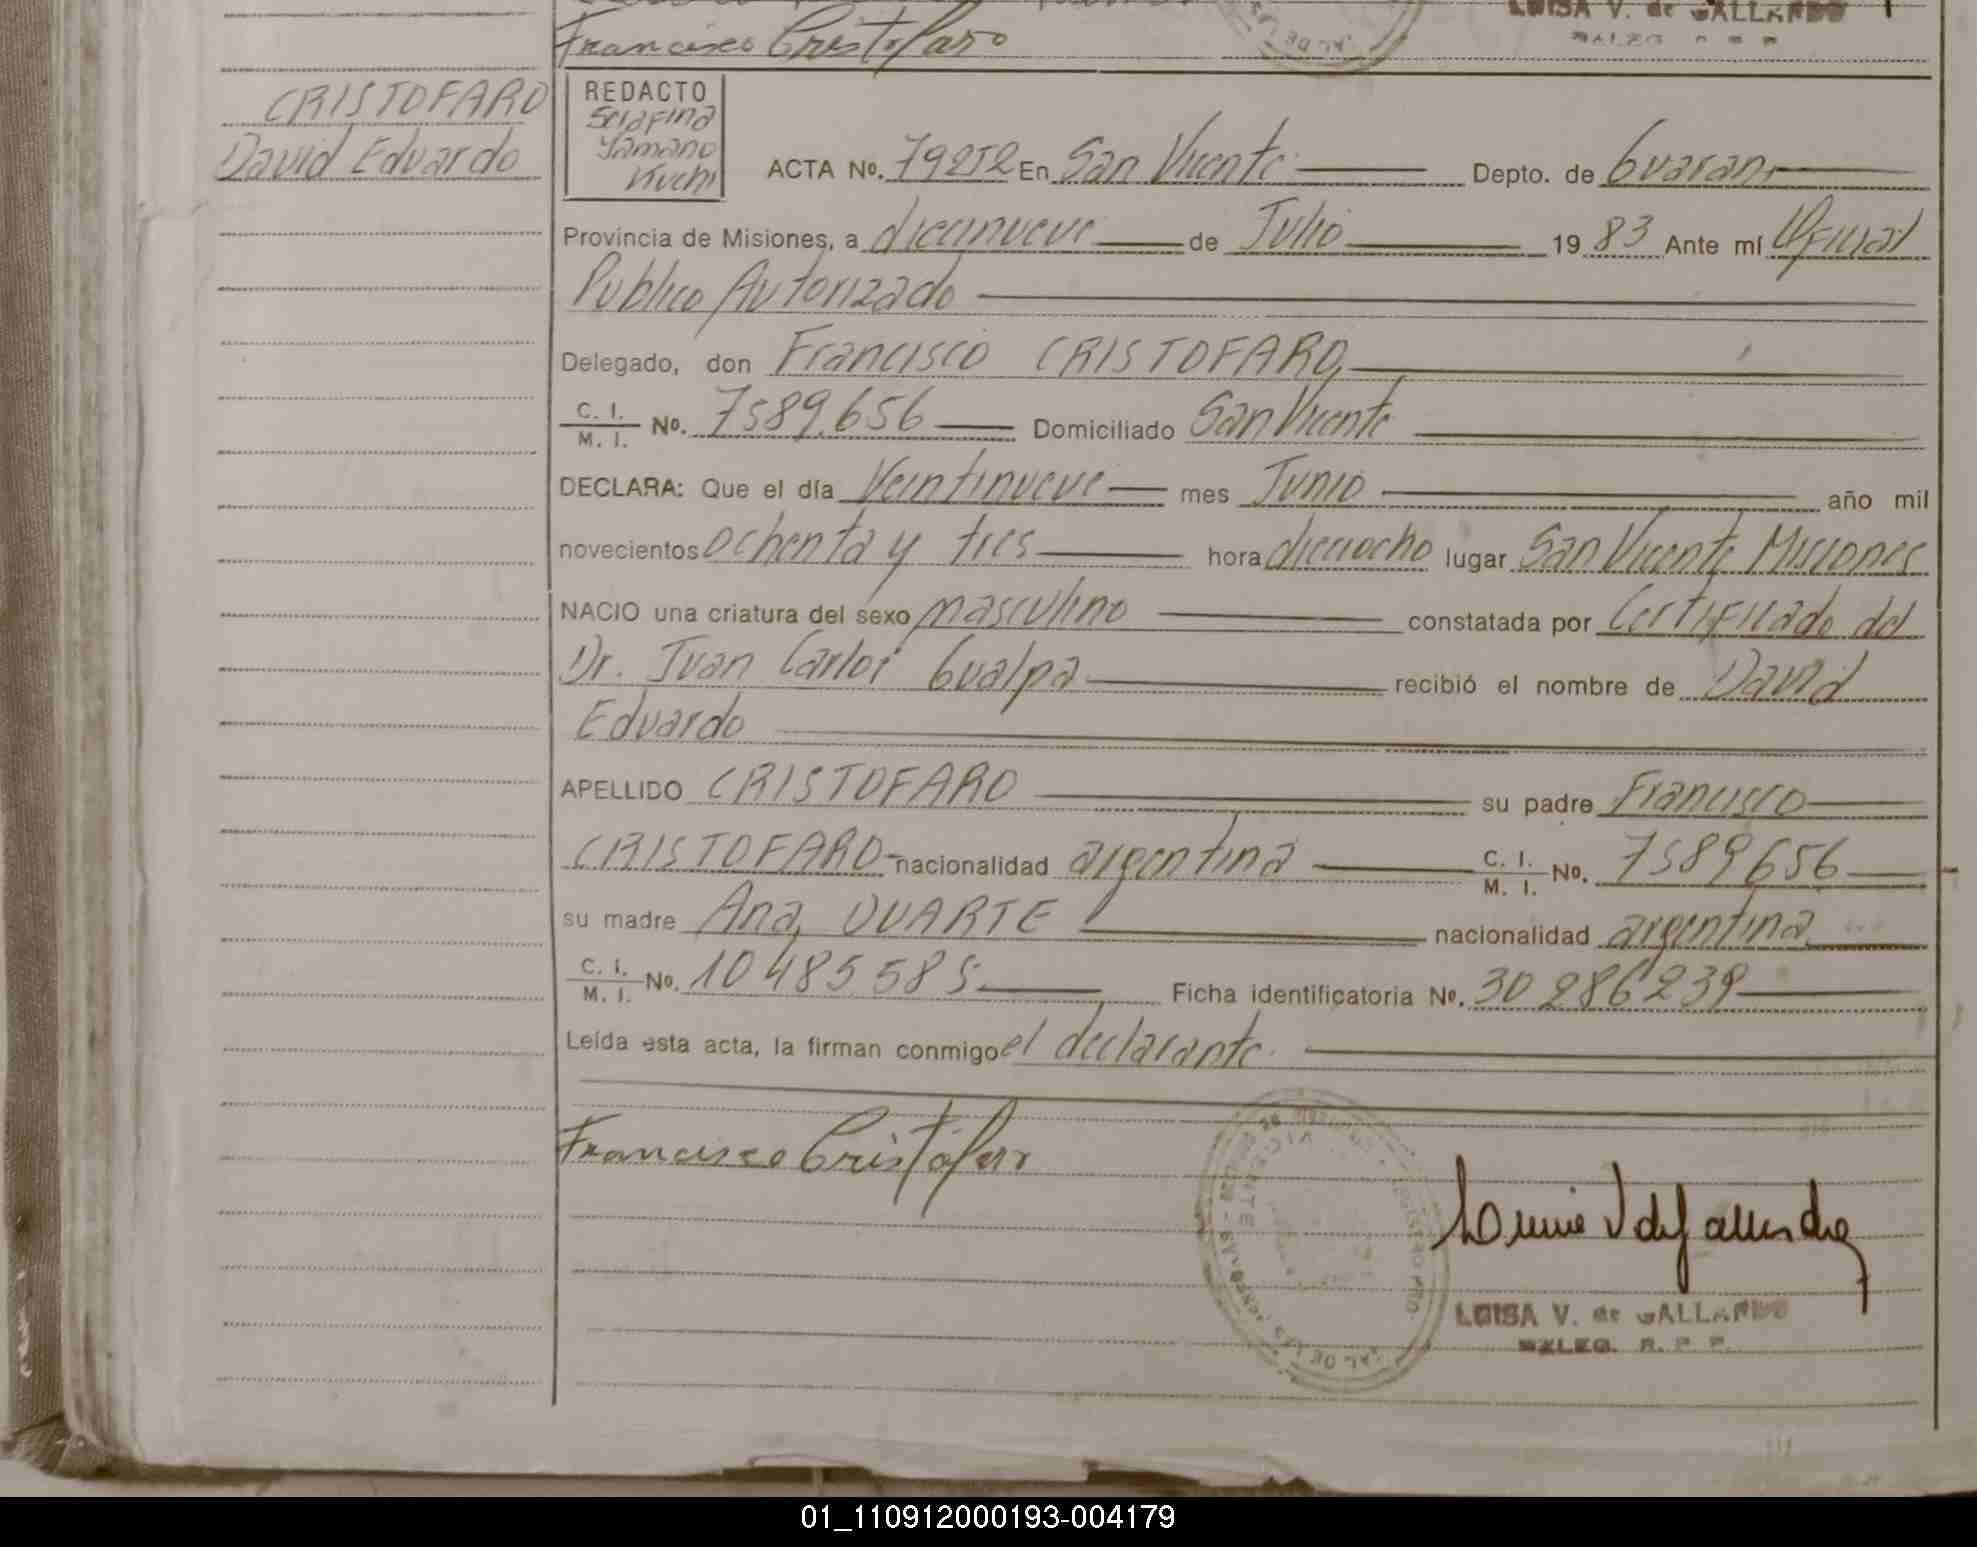 Francisco Cristofaro
LUISA V. de GALLARDO
CRISTOFARO
David Eduardo
REDACTO
Serafina
Yamano
Kuchi
ACTA No. 79252 En San Vicente Depto. de Guarani
Provincia de Misiones, a diecinueve de Julio 1983 Ante mí Oficial
Publico Autorizado
Delegado, don Francisco CRISTOFARO,
C. I. / M. I. No. 7589.656 Domiciliado San Vicente
DECLARA: Que el día Veintinueve mes Junio año mil
novecientos ochenta y tres hora dieciocho lugar San Vicente Misiones
NACIO una criatura del sexo masculino constatada por Certificado del
Dr. Juan Carlos Gualpa recibió el nombre de David
Eduardo
APELLIDO CRISTOFARO su padre Francisco
CRISTOFARO nacionalidad argentina C. I. / M. I. No. 7589656
su madre Ana, DUARTE nacionalidad argentina
C. I. / M. I. No. 10485585 Ficha identificatoria No. 30286239
Leída esta acta, la firman conmigo el declarante.
Francisco Cristofaro
LUISA V. de GALLARDO
01_110912000193-004179